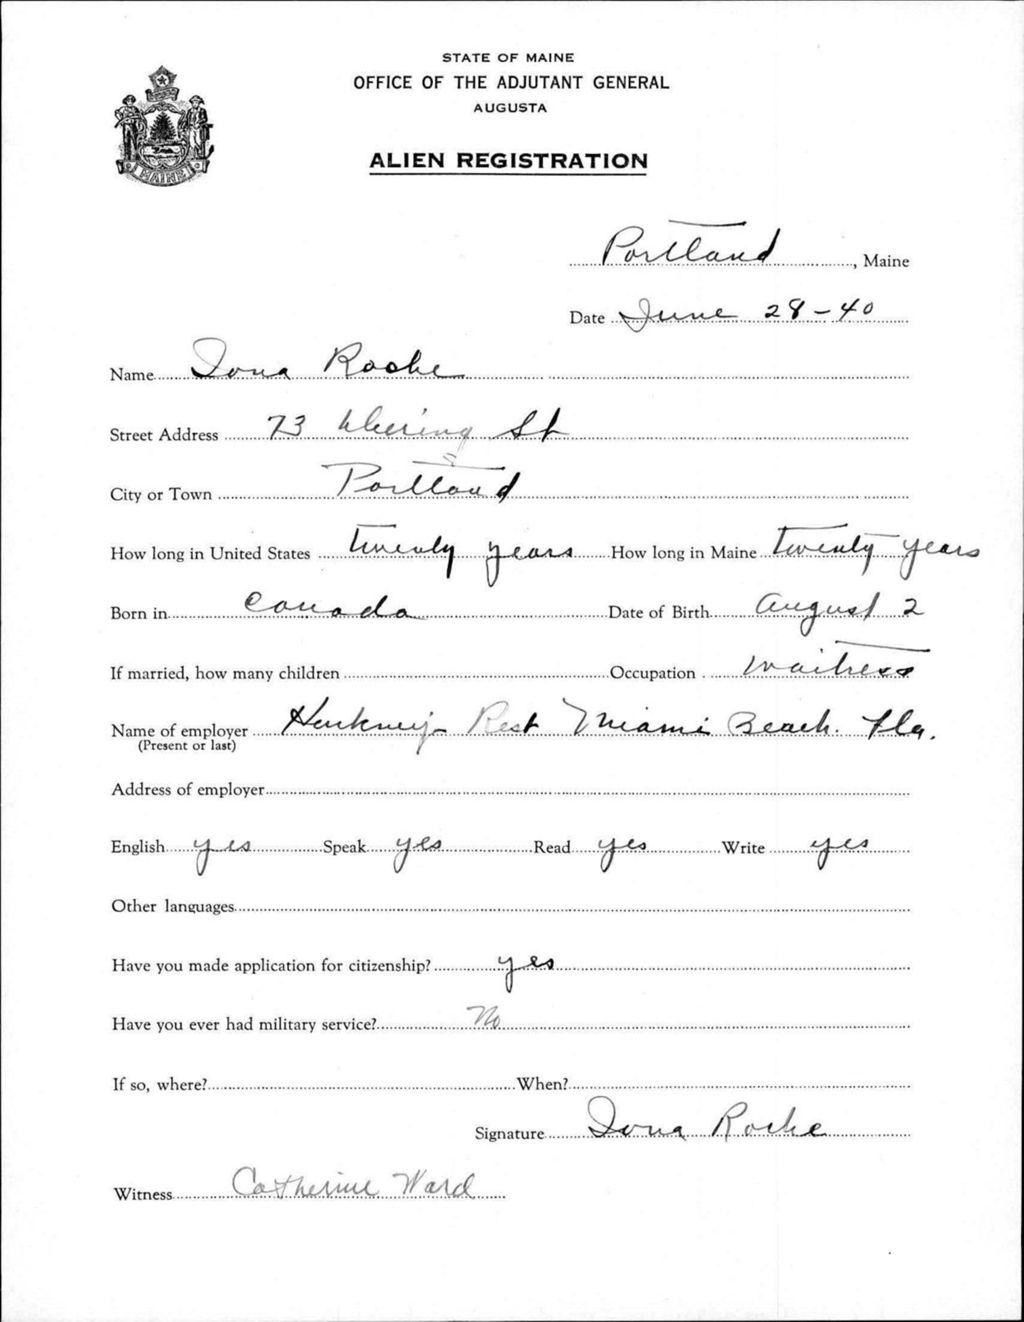 STATE OF MAINE
OFFICE OF THE ADJUTANT GENERAL
AUGUSTA
ALIEN REGISTRATION
MAINE
Portland, Maine
Date June 28-40
Name Iona Roche
Street Address 73 St
City or Town Portland
How long in United States twenty years How long in Maine twenty years
Born in Canada Date of Birth August 2
If married, how many children Occupation Waitress
Name of employer Rest Miami Beach. Fla.
(Present or last)
Address of employer
English yes Speak yes Read yes Write yes
Other languages
Have you made application for citizenship? yes
Have you ever had military service? No
If so, where? When?
Signature Iona Roche
Witness Catherine Ward